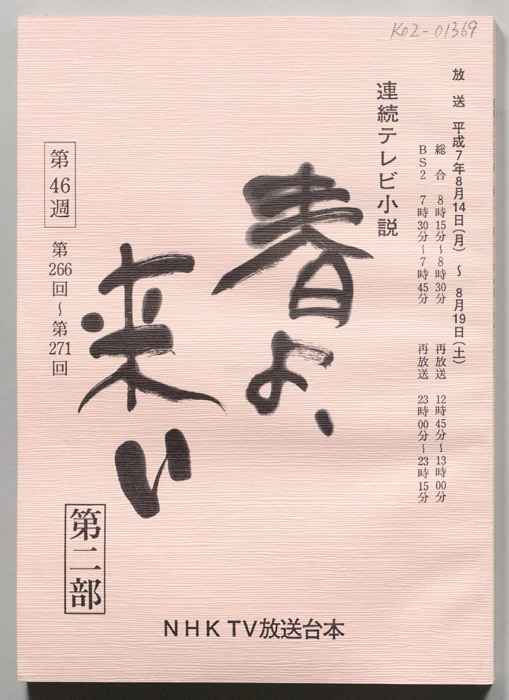 K02-01369
放送 平成7年8月14日(月)～8月19日(土)
総合 8時15分～8時30分 再放送 12時45分～13時00分
BS2 7時30分～7時45分 再放送 23時00分～23時15分
連続テレビ小説
春よ、
来い
第46週
第266回～第271回
第二部
NHK TV放送台本